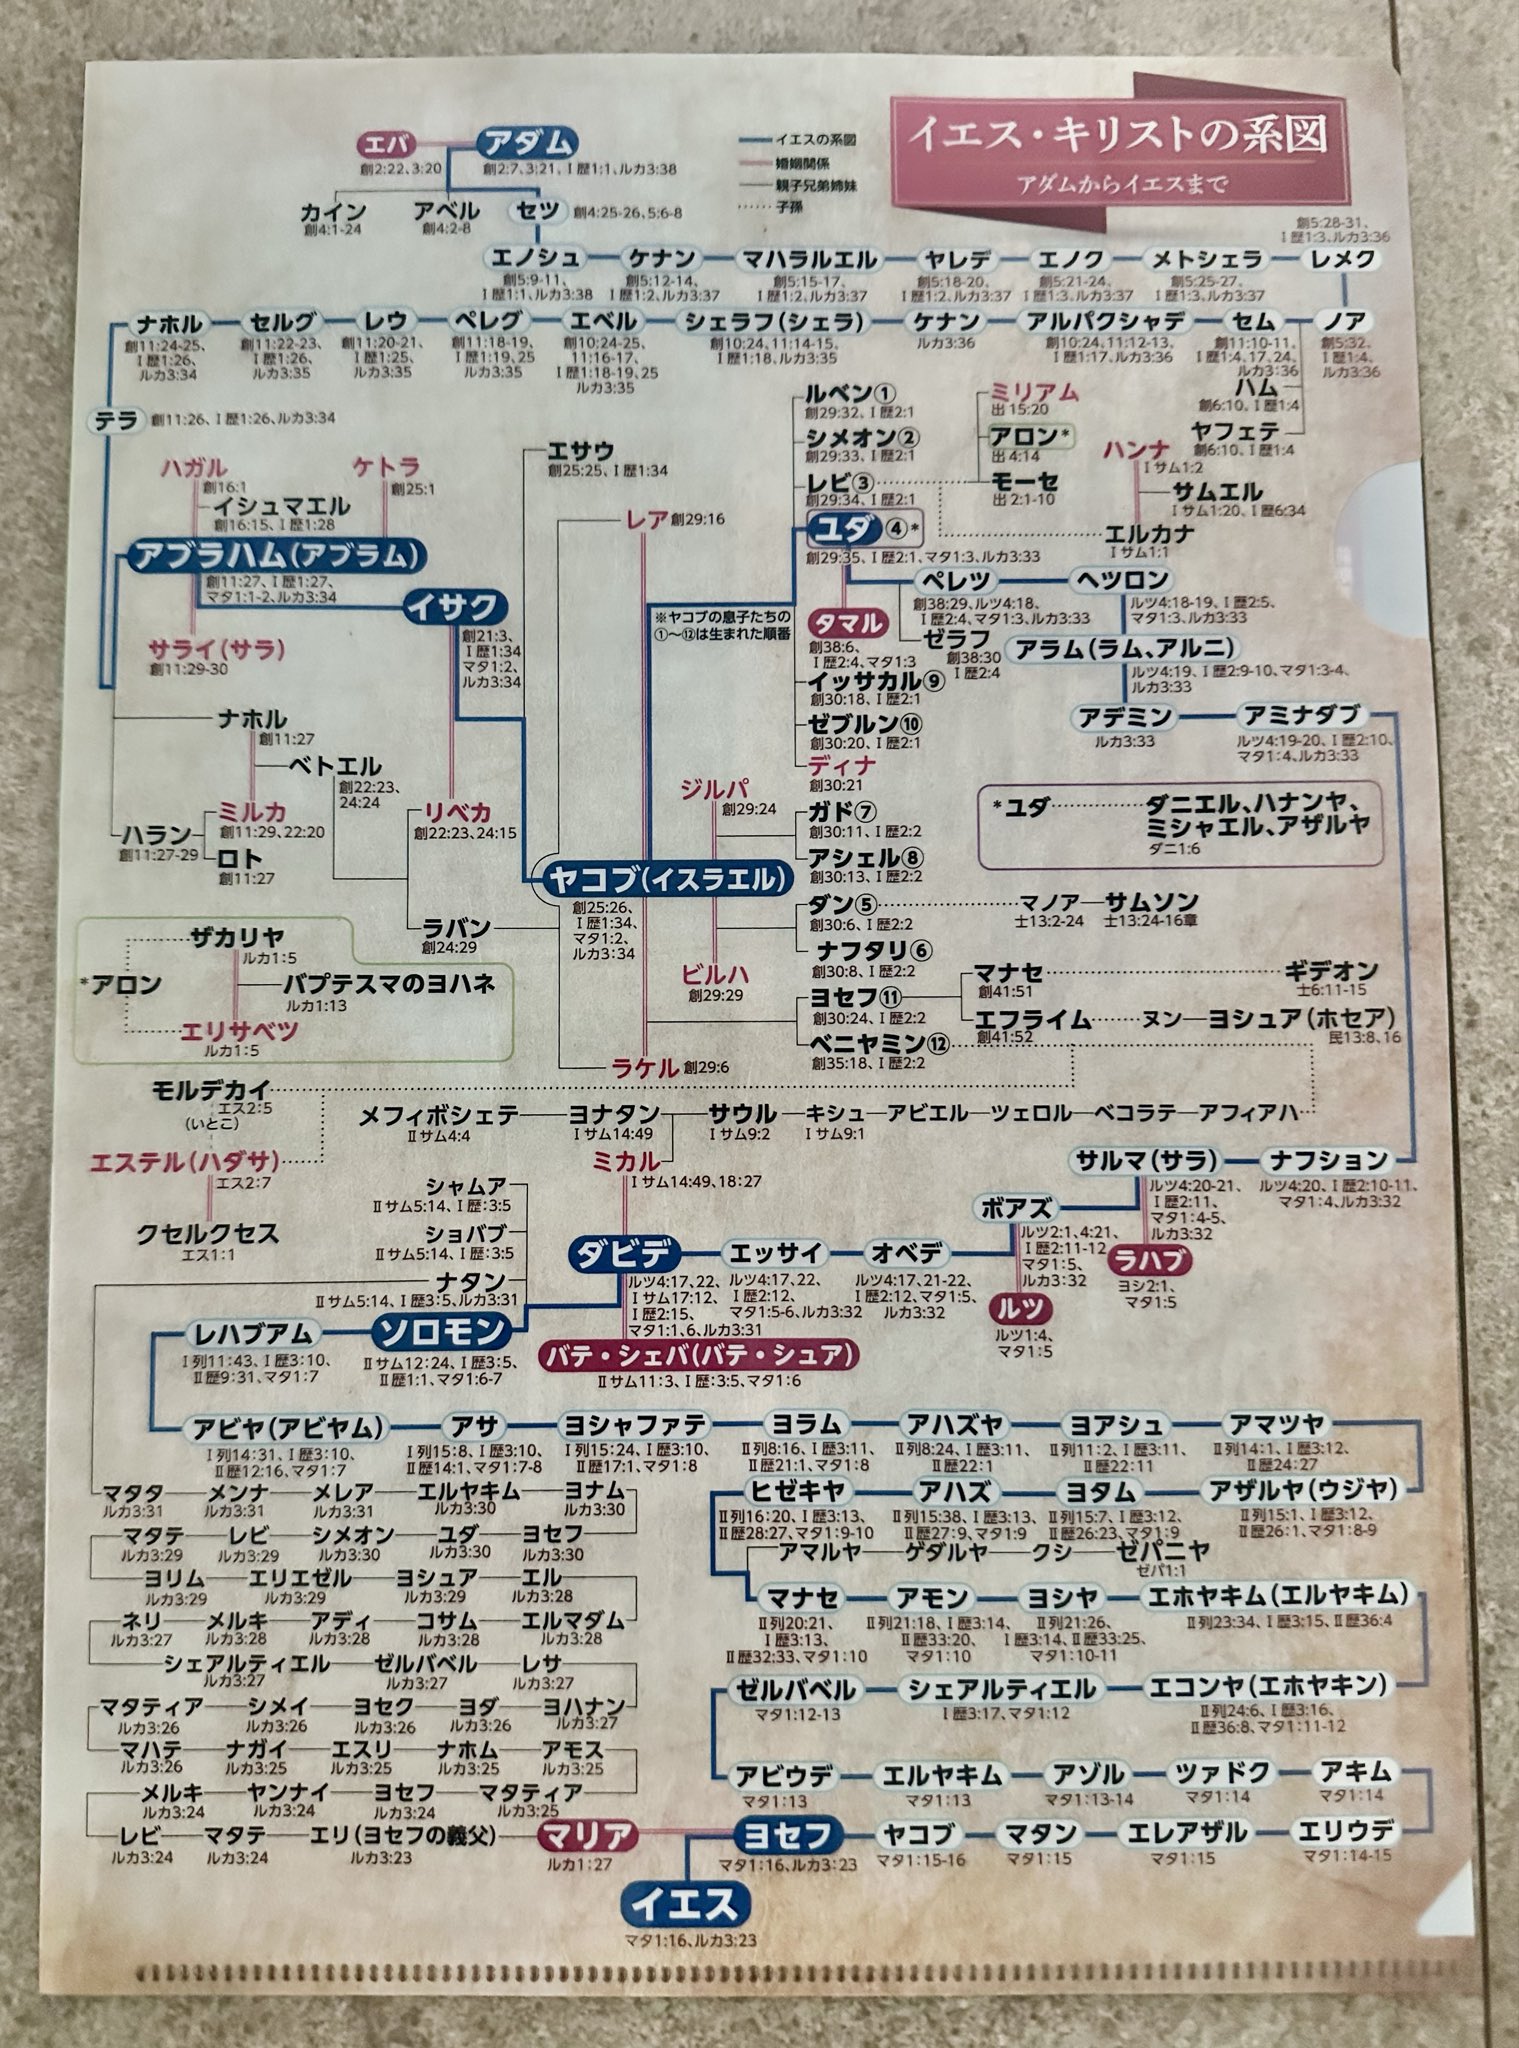 イエス・キリストの系図
アダムからイエスまで
イエスの系図
婚姻関係
親子兄弟姉妹
子孫
エバ
創2:22、3:20
アダム
創2:7、3:21、Ⅰ歴1:1、ルカ3:38
カイン
創4:1-24
アベル
創4:2-8
セツ
創4:25-26、5:6-8
エノシュ
創5:9-11、
Ⅰ歴1:1、ルカ3:38
ケナン
創5:12-14、
Ⅰ歴1:2、ルカ3:37
マハラルエル
創5:15-17、
Ⅰ歴1:2、ルカ3:37
ヤレデ
創5:18-20、
Ⅰ歴1:2、ルカ3:37
エノク
創5:21-24、
Ⅰ歴1:3、ルカ3:37
メトシェラ
創5:25-27、
Ⅰ歴1:3、ルカ3:37
創5:28-31、
Ⅰ歴1:3、ルカ3:36
レメク
ナホル
創11:24-25、
Ⅰ歴1:26、
ルカ3:34
セルグ
創11:22-23、
Ⅰ歴1:26、
ルカ3:35
レウ
創11:20-21、
Ⅰ歴1:25、
ルカ3:35
ペレグ
創11:18-19、
Ⅰ歴1:19、25
ルカ3:35
エベル
創10:24-25、
11:16-17、
Ⅰ歴1:18-19、25
ルカ3:35
シェラフ(シェラ)
創10:24、11:14-15、
Ⅰ歴1:18、ルカ3:35
ケナン
ルカ3:36
アルパクシャデ
創10:24、11:12-13、
Ⅰ歴1:17、ルカ3:36
セム
創11:10-11、
Ⅰ歴1:4、17、24、
ルカ3:36
ノア
創5:32、
Ⅰ歴1:4、
ルカ3:36
ハム
創6:10、Ⅰ歴1:4
ヤフェテ
創6:10、Ⅰ歴1:4
テラ
創11:26、Ⅰ歴1:26、ルカ3:34
ハガル
創16:1
ケトラ
創25:1
イシュマエル
創16:15、Ⅰ歴1:28
アブラハム(アブラム)
創11:27、Ⅰ歴1:27、
マタ1:1-2、ルカ3:34
サライ(サラ)
創11:29-30
イサク
創21:3、
Ⅰ歴1:34
マタ1:2、
ルカ3:34
エサウ
創25:25、Ⅰ歴1:34
レア 創29:16
ルベン①
創29:32、Ⅰ歴2:1
シメオン②
創29:33、Ⅰ歴2:1
レビ③
創29:34、Ⅰ歴2:1
ユダ ④*
創29:35、Ⅰ歴2:1、マタ1:3、ルカ3:33
ミリアム
出15:20
アロン*
出4:14
モーセ
出2:1-10
ハンナ
Ⅰサム1:2
サムエル
Ⅰサム1:20、Ⅰ歴6:34
エルカナ
Ⅰサム1:1
※ヤコブの息子たちの
①~⑫は生まれた順番
タマル
創38:6、
Ⅰ歴2:4、マタ1:3
ペレツ
創38:29、ルツ4:18、
Ⅰ歴2:4、マタ1:3、ルカ3:33
ゼラフ
創38:30
Ⅰ歴2:4
ヘツロン
ルツ4:18-19、Ⅰ歴2:5、
マタ1:3、ルカ3:33
アラム(ラム、アルニ)
ルツ4:19、Ⅰ歴2:9-10、マタ1:3-4、
ルカ3:33
アデミン
ルカ3:33
アミナダブ
ルツ4:19-20、Ⅰ歴2:10、
マタ1:4、ルカ3:33
イッサカル⑨
創30:18、Ⅰ歴2:1
ゼブルン⑩
創30:20、Ⅰ歴2:1
ディナ
創30:21
ナホル
創11:27
ベトエル
創22:23、
24:24
ミルカ
創11:29、22:20
ハラン
創11:27-29
ロト
創11:27
リベカ
創22:23、24:15
ラバン
創24:29
ジルパ
創29:24
ガド⑦
創30:11、Ⅰ歴2:2
アシェル⑧
創30:13、Ⅰ歴2:2
*ユダ
ダニエル、ハナンヤ、
ミシャエル、アザルヤ
ダニ1:6
ヤコブ(イスラエル)
創25:26、
Ⅰ歴1:34、
マタ1:2、
ルカ3:34
ダン⑤
創30:6、Ⅰ歴2:2
マノア
士13:2-24
サムソン
士13:24-16章
ナフタリ⑥
創30:8、Ⅰ歴2:2
ビルハ
創29:29
ヨセフ⑪
創30:24、Ⅰ歴2:2
マナセ
創41:51
ギデオン
士6:11-15
エフライム
創41:52
ヌン
ヨシュア(ホセア)
民13:8、16
ベニヤミン⑫
創35:18、Ⅰ歴2:2
ラケル 創29:6
ザカリヤ
ルカ1:5
*アロン
バプテスマのヨハネ
ルカ1:13
エリサベツ
ルカ1:5
モルデカイ
エス2:5
(いとこ)
エステル(ハダサ)
エス2:7
クセルクセス
エス1:1
メフィボシェテ
Ⅱサム4:4
ヨナタン
Ⅰサム14:49
サウル
Ⅰサム9:2
キシュ
Ⅰサム9:1
アビエル
ツェロル
ベコラテ
アフィアハ
ミカル
Ⅰサム14:49、18:27
サルマ(サラ)
ルツ4:20-21、
Ⅰ歴2:11、
マタ1:4-5、
ルカ3:32
ナフション
ルツ4:20、Ⅰ歴2:10-11、
マタ1:4、ルカ3:32
シャムア
Ⅱサム5:14、Ⅰ歴:3:5
ショバブ
Ⅱサム5:14、Ⅰ歴:3:5
ナタン
Ⅱサム5:14、Ⅰ歴3:5、ルカ3:31
ダビデ
ルツ4:17、22、
Ⅰサム17:12、
Ⅰ歴2:15、
マタ1:1、6、ルカ3:31
エッサイ
ルツ4:17、22、
Ⅰ歴2:12、
マタ1:5-6、ルカ3:32
オベデ
ルツ4:17、21-22、
Ⅰ歴2:12、マタ1:5、
ルカ3:32
ボアズ
ルツ2:1、4:21、
Ⅰ歴2:11-12
マタ1:5、
ルカ3:32
ルツ
ルツ1:4、
マタ1:5
ラハブ
ヨシ2:1、
マタ1:5
レハブアム
Ⅰ列11:43、Ⅰ歴3:10、
Ⅱ歴9:31、マタ1:7
ソロモン
Ⅱサム12:24、Ⅰ歴3:5、
Ⅱ歴1:1、マタ1:6-7
バテ・シェバ(バテ・シュア)
Ⅱサム11:3、Ⅰ歴:3:5、マタ1:6
アビヤ(アビヤム)
Ⅰ列14:31、Ⅰ歴3:10、
Ⅱ歴12:16、マタ1:7
アサ
Ⅰ列15:8、Ⅰ歴3:10、
Ⅱ歴14:1、マタ1:7-8
ヨシャファテ
Ⅰ列15:24、Ⅰ歴3:10、
Ⅱ歴17:1、マタ1:8
ヨラム
Ⅱ列8:16、Ⅰ歴3:11、
Ⅱ歴21:1、マタ1:8
アハズヤ
Ⅱ列8:24、Ⅰ歴3:11、
Ⅱ歴22:1
ヨアシュ
Ⅱ列11:2、Ⅰ歴3:11、
Ⅱ歴22:11
アマツヤ
Ⅱ列14:1、Ⅰ歴3:12、
Ⅱ歴24:27
ヒゼキヤ
Ⅱ列16:20、Ⅰ歴3:13、
Ⅱ歴28:27、マタ1:9-10
アハズ
Ⅱ列15:38、Ⅰ歴3:13、
Ⅱ歴27:9、マタ1:9
ヨタム
Ⅱ列15:7、Ⅰ歴3:12、
Ⅱ歴26:23、マタ1:9
アザルヤ(ウジヤ)
Ⅱ列15:1、Ⅰ歴3:12、
Ⅱ歴26:1、マタ1:8-9
アマルヤ
ゲダルヤ
クシ
ゼパニヤ
ゼパ1:1
マナセ
Ⅱ列20:21、
Ⅰ歴3:13、
Ⅱ歴32:33、マタ1:10
アモン
Ⅱ列21:18、Ⅰ歴3:14、
Ⅱ歴33:20、
マタ1:10
ヨシヤ
Ⅱ列21:26、
Ⅰ歴3:14、Ⅱ歴33:25、
マタ1:10-11
エホヤキム(エルヤキム)
Ⅱ列23:34、Ⅰ歴3:15、Ⅱ歴36:4
ゼルバベル
マタ1:12-13
シェアルティエル
Ⅰ歴3:17、マタ1:12
エコンヤ(エホヤキン)
Ⅱ列24:6、Ⅰ歴3:16、
Ⅱ歴36:8、マタ1:11-12
アビウデ
マタ1:13
エルヤキム
マタ1:13
アゾル
マタ1:13-14
ツァドク
マタ1:14
アキム
マタ1:14
マタタ
ルカ3:31
メンナ
ルカ3:31
メレア
ルカ3:31
エルヤキム
ルカ3:30
ヨナム
ルカ3:30
マタテ
ルカ3:29
レビ
ルカ3:29
シメオン
ルカ3:30
ユダ
ルカ3:30
ヨセフ
ルカ3:30
ヨリム
ルカ3:29
エリエゼル
ルカ3:29
ヨシュア
ルカ3:29
エル
ルカ3:28
ネリ
ルカ3:27
メルキ
ルカ3:28
アディ
ルカ3:28
コサム
ルカ3:28
エルマダム
ルカ3:28
シェアルティエル
ルカ3:27
ゼルバベル
ルカ3:27
レサ
ルカ3:27
マタティア
ルカ3:26
シメイ
ルカ3:26
ヨセク
ルカ3:26
ヨダ
ルカ3:26
ヨハナン
ルカ3:27
マハテ
ルカ3:26
ナガイ
ルカ3:25
エスリ
ルカ3:25
ナホム
ルカ3:25
アモス
ルカ3:25
メルキ
ルカ3:24
ヤンナイ
ルカ3:24
ヨセフ
ルカ3:24
マタティア
ルカ3:25
レビ
ルカ3:24
マタテ
ルカ3:24
エリ(ヨセフの義父)
ルカ3:23
マリア
ルカ1:27
ヨセフ
マタ1:16、ルカ3:23
ヤコブ
マタ1:15-16
マタン
マタ1:15
エレアザル
マタ1:15
エリウデ
マタ1:14-15
イエス
マタ1:16、ルカ3:23